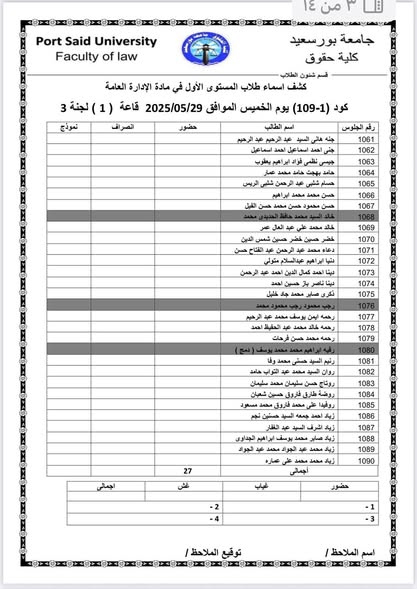 ٣ من ١٤
Port Said University
Faculty of law
جامعة بورسعيد
كلية حقوق
قسم شئون الطلاب
كشف اسماء طلاب المستوى الأول في مادة الإدارة العامة
كود (1-109) يوم الخميس الموافق 2025/05/29 قاعة ( 1 ) لجنة 3
رقم الجلوس اسم الطالب حضور انصراف نموذج
1061 جنه هاني السيد عبد الرحيم عبد الرحيم
1062 جنى احمد اسماعيل احمد اسماعيل
1063 جيسى نظمى فؤاد ابراهيم يعقوب
1064 حامد بهجت حامد محمد عمار
1065 حسام شلبى عبد الرحمن شلبى الريس
1066 حسن محمد محمد ابراهيم
1067 حسن محمود حسن محمد حسن الفيل
1068 خالد السيد محمد حافظ الحديدى محمد
1069 خالد محمد على عبد العال عمر
1070 خضر حسين خضر حسين شمس الدين
1071 دعاء محمد عبد الرحمن عبد الفتاح حسن
1072 دنيا ابراهيم عبدالسلام متولي
1073 دينا احمد كمال الدين احمد عبد الرحمن
1074 دينا ناصر باز حسين احمد
1075 ذكرى صابر محمد جاد خليل
1076 رجب محمود رجب محمود محمد
1077 رحمه ايمن يوسف محمد عبد الرحيم
1078 رحمه خالد محمد عبد الحفيظ احمد
1079 رحمه محمد حسن فرحات
1080 رقيه ابراهيم محمد محمد يوسف ( دمج )
1081 رنيم السيد حسنى محمد وفا
1082 روان السيد محمد عبد التواب حامد
1083 روتاج حسن سليمان محمد سليمان
1084 روضة طارق فاروق حسين شعبان
1085 روفيدا على محمد فاروق محمد مسعود
1086 زياد احمد جمعه السيد حسنين نجم
1087 زياد اشرف السيد عبد الغفار
1088 زياد صابر محمد يوسف ابراهيم الجداوى
1089 زياد محمد عبد الجواد محمد عبد الجواد
1090 زياد محمد محمد علي عماره
أجمالى 27
حضور غياب غش اجمالى
1 - 2 -
3 - 4 -
اسم الملاحظ / توقيع الملاحظ /